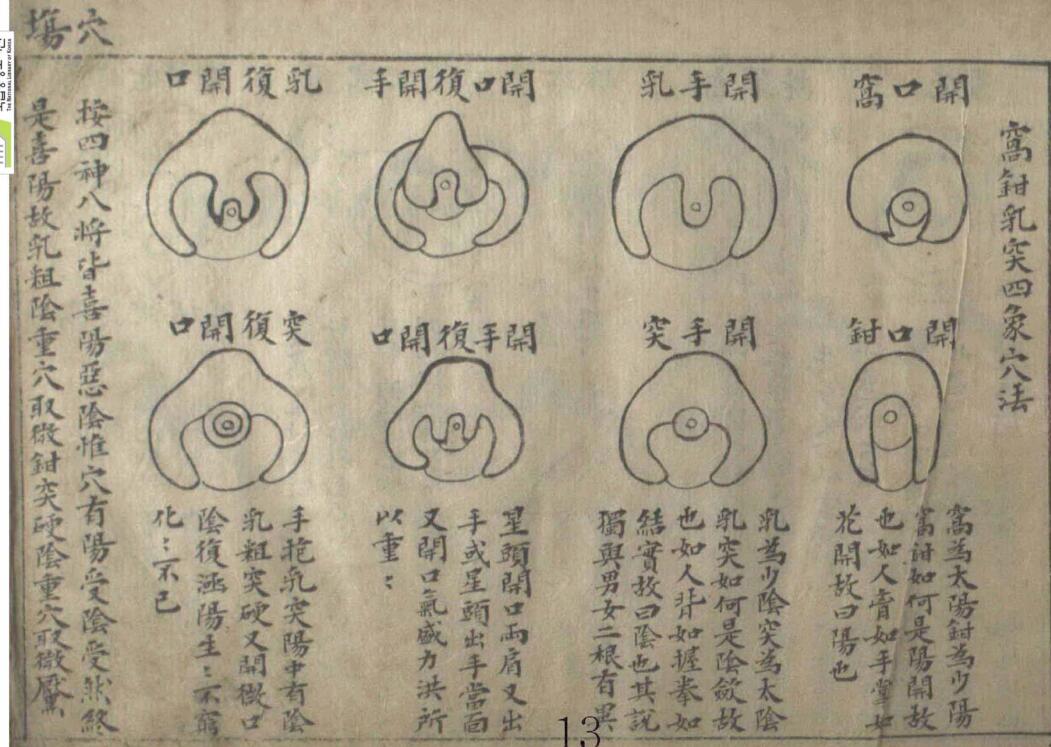 窩鉗乳突四象穴法
開口窩
開口鉗
窩為太陽鉗為少陽
窩鉗如何是陽開故
也如人㫖如手掌如
花開故曰陽也
開手乳
開手突
乳為少陰突為太陰
乳突如何是陰斂故
也如人背如握拳如
結實故曰陰也其説
獨與男女二根有異
開口復開手
開手復開口
星頭開口兩肩又出
手或星頭出手當面
又開口氣盛力洪所
以重〻
乳復開口
突復開口
手抱乳突陽中有陰
乳粗突硬又開微口
陰復涵陽生〻不窮
化〻不已
按四神八將皆喜陽惡陰惟穴有陽受陰受然終
是喜陽故乳粗陰重穴取微鉗突硬陰重穴取微靨
穴塲
13
The National Library of Korea